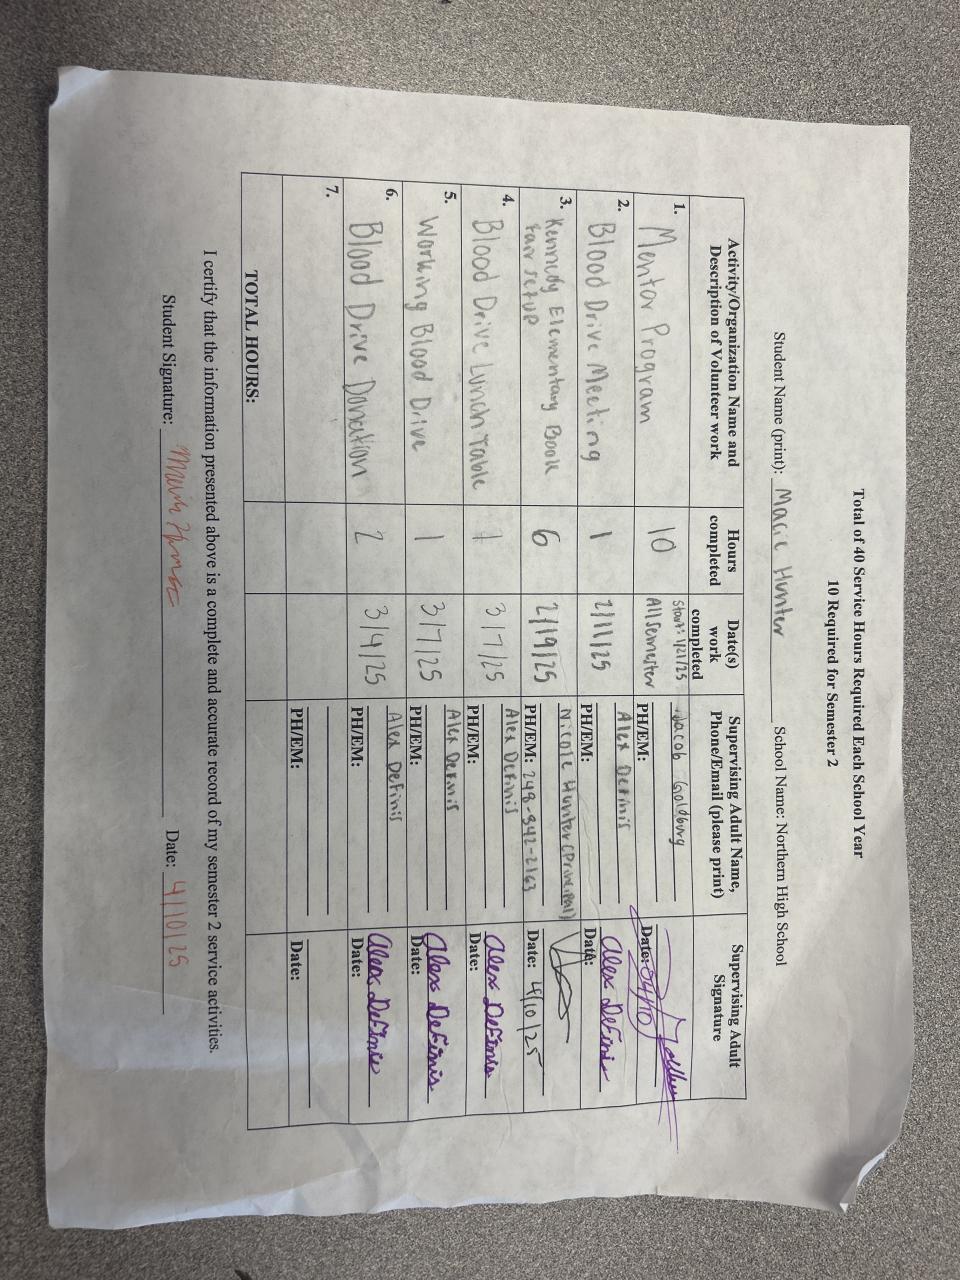 Total of 40 Service Hours Required Each School Year
10 Required for Semester 2
Student Name (print): Macie Hunter School Name: Northern High School
Activity/Organization Name and Description of Volunteer work
Hours completed
Date(s) work completed
Supervising Adult Name, Phone/Email (please print)
Supervising Adult Signature
1. Mentor Program
10
Start: 1/21/25
All semester
Jacob Goldburg
PH/EM:
Date: 04/10
2. Blood Drive Meeting
1
2/11/25
Alex Definis
PH/EM:
Alex Definis
Date:
3. Kennedy Elementary Book
Fair setup
6
2/19/25
Nicole Hunter (Principal)
PH/EM: 248-342-2163
Date: 4/10/25
4. Blood Drive Lunch Table
1
3/7/25
Alex Definis
PH/EM:
Alex Definis
Date:
5. Working Blood Drive
1
3/7/25
Alex Definis
PH/EM:
Alex Definis
Date:
6. Blood Drive Donation
2
3/4/25
Alex Definis
PH/EM:
Alex Definis
Date:
7.
PH/EM:
Date:
TOTAL HOURS:
I certify that the information presented above is a complete and accurate record of my semester 2 service activities.
Student Signature: Date: 4/10/25